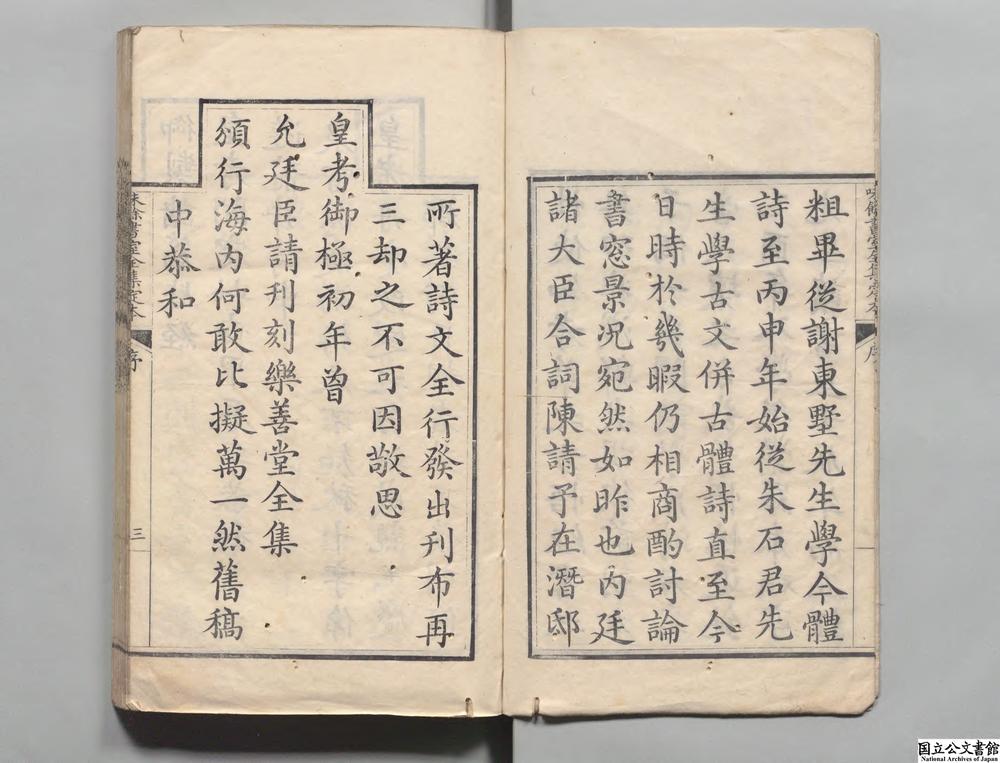 粗畢從謝東墅先生學今體
詩至丙申年始從朱石君先
生學古文併古體詩直至今
日時於幾暇仍相商酌討論
書窓景况宛然如昨也内廷
諸大臣合詞陳請予在潛邸
所著詩文全行發出刊布再
三却之不可因敬思
皇考御極初年曾
允廷臣請刊刻樂善堂全集
頒行海内何敢比擬萬一然舊稿
中恭和
味餘書室全集定本
序
三
国立公文書館
National Archives of Japan